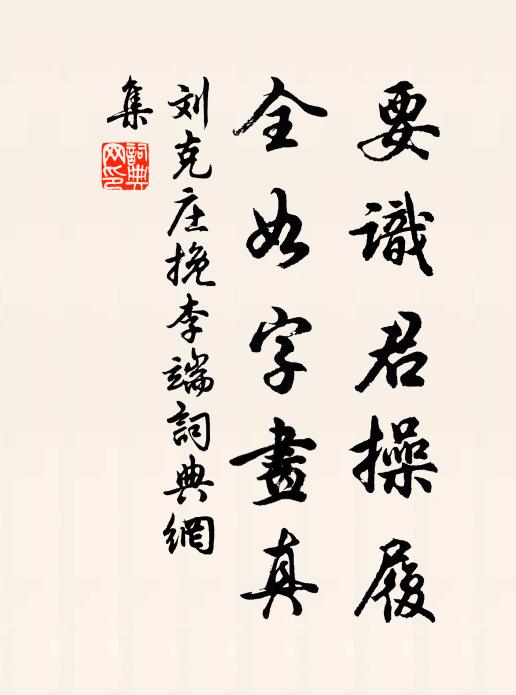 要識君操履
全如字畫真
刘克庄挽李端詞典網
集
詞典
网印